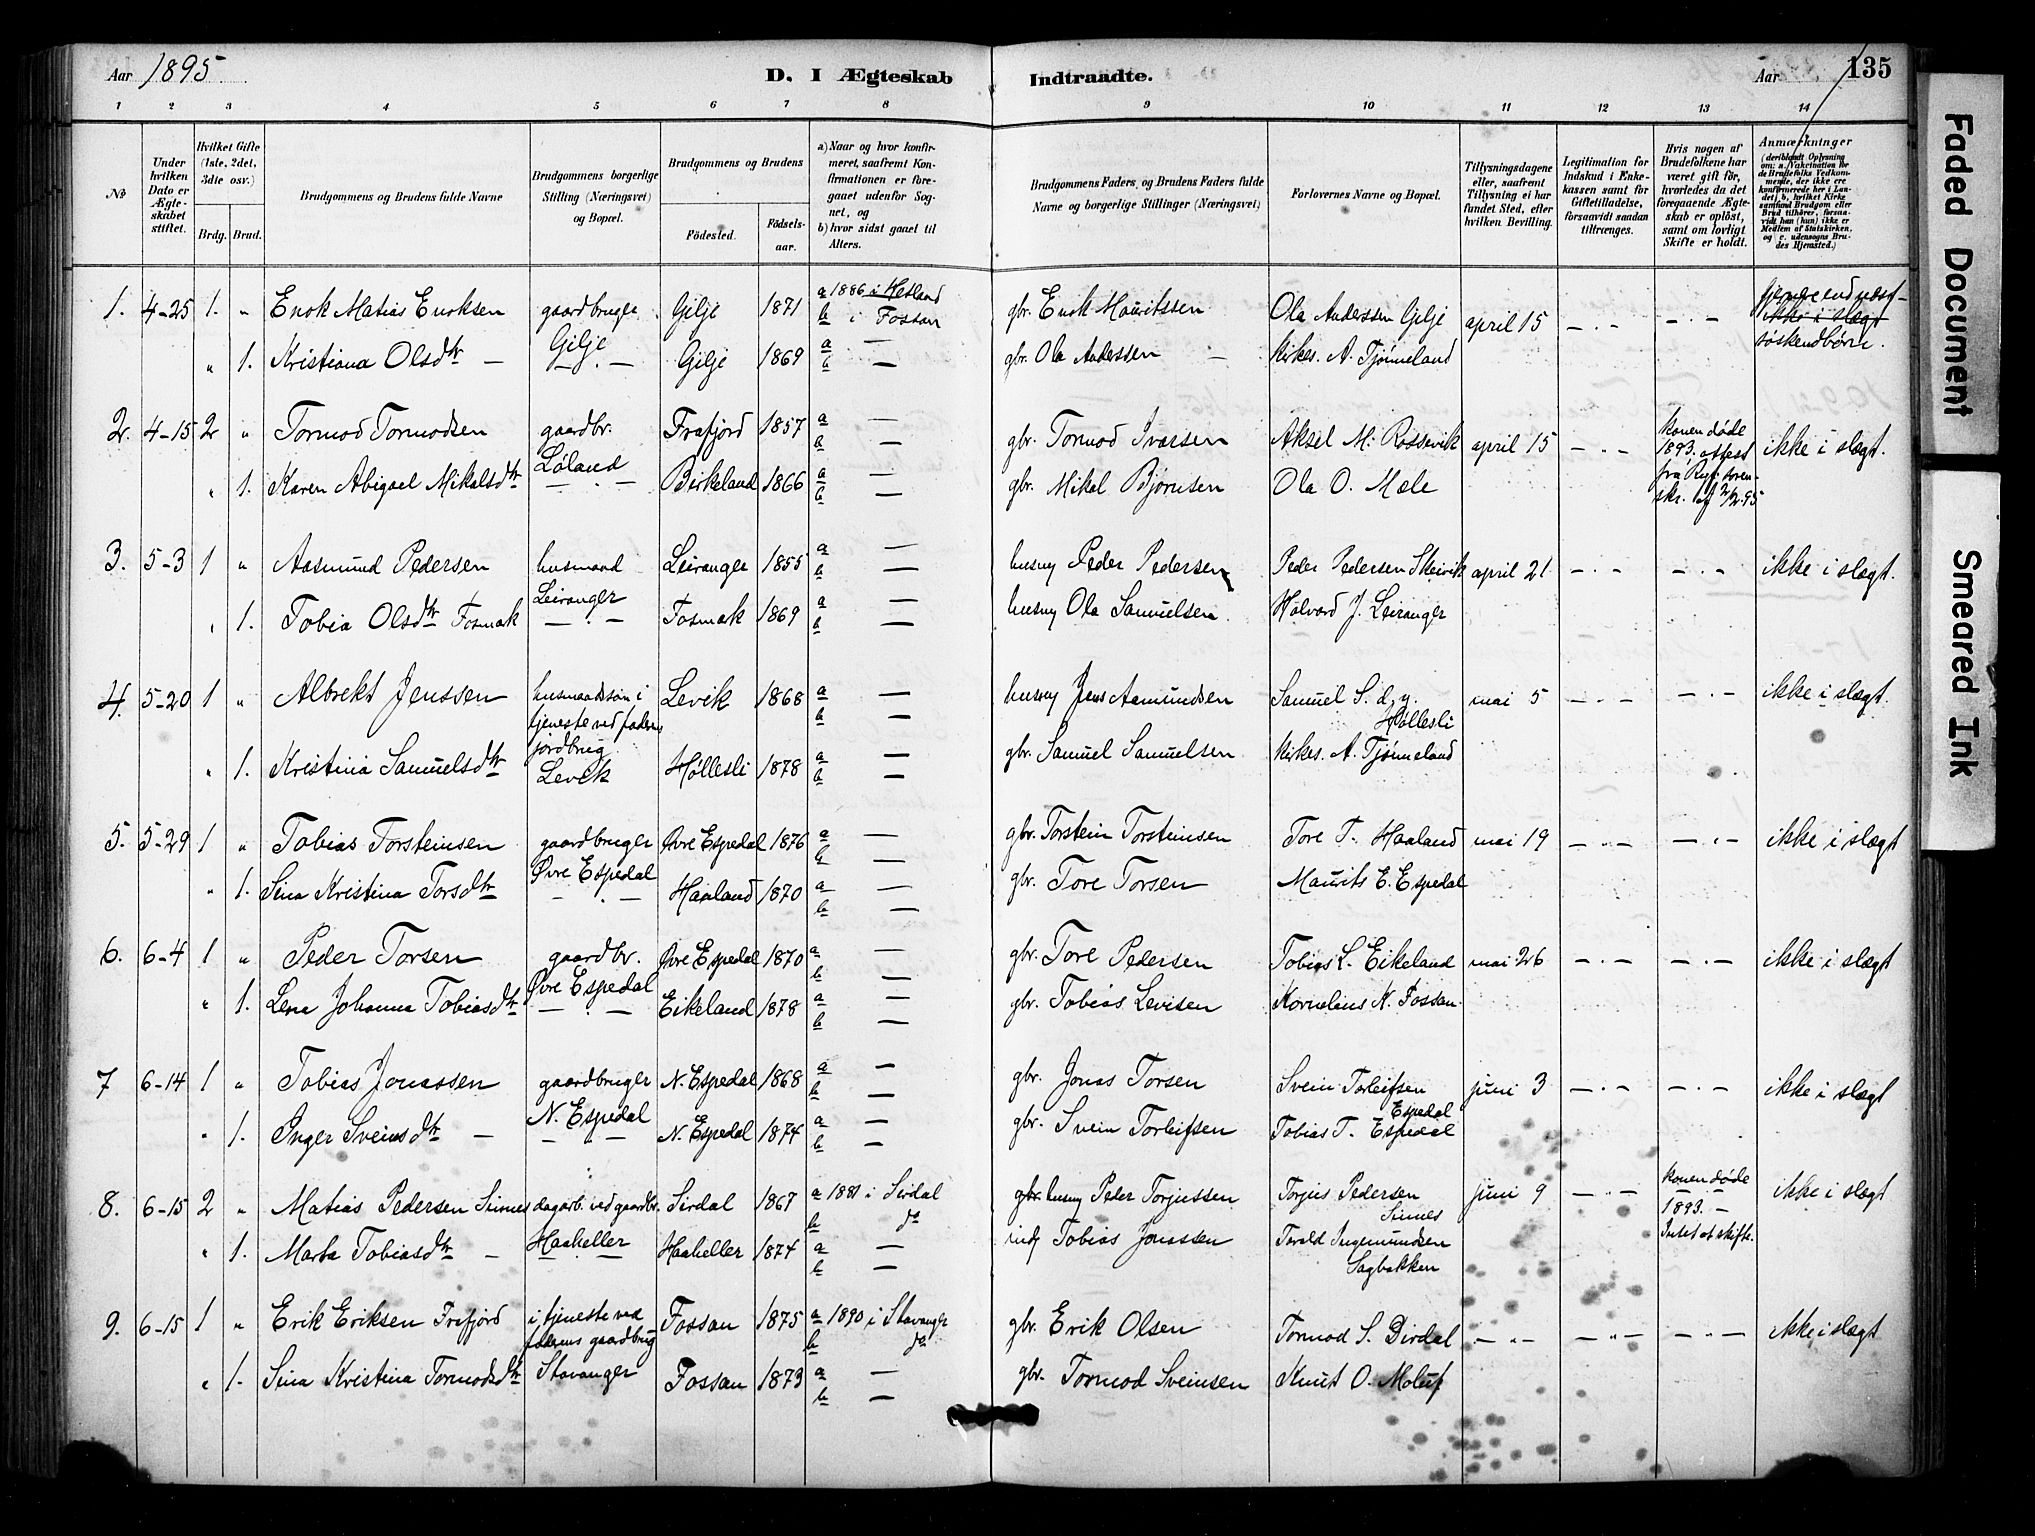 Aar 1895 D. I Ægteskab Indtraadte. Aar 135
1 2 3 4 5 6 7 8 9 10 11 12 13 14
No
Under hvilken Dato er Ægteskabet stiftet.
Hvilket Gifte (1ste, 2det, 3die osv.)
Brdg. Brud.
Brudgommens og Brudens fulde Navne
Brudgommens borgerlige Stilling (Næringsvei) og Bopæl.
Brudgommens og Brudens
Fødested. Fødselsaar.
a) Naar og hvor konfirmeret, saafremt Konfirmationen er foregaaet udenfor Sognet, og
b) hvor sidst gaaet til Alters.
Brudgommens Faders, og Brudens Faders fulde Navne og borgerlige Stillinger (Næringsvei)
Forlovernes Navne og Bopæl.
Tillysningsdagene eller, saafremt Tillysning ei har fundet Sted, efter hvilken Bevilling.
Legitimation for Indskud i Enkekassen samt for Giftetilladelse, forsaavidt saadan tiltrænges.
Hvis nogen af Brudefolkene har været gift før, hvorledes da det foregaaende Ægteskab er opløst, samt om lovligt Skifte er holdt.
Anmærkninger (deriblandt Oplysning om: a. Vakcination for de Brudefolks Vedkommende, der ikke ere konfirmerede her i Landet, b. hvilket Kirkesamfund Brudgom eller Brud tilhører, forsaavidt han (hun) ikke er Medlem af Statskirken, og c. udensogns Brudes Hjemsted.)
1. 4-25 1. " Enok Matias Enoksen gaardbruger Gilje 1871 a 1886 i Hetland gbr. Enok Mauritssen Ola Anderssen Gilje april 15 -"- -"- fjernere end næst-
Gilje b i Fossan ikke i slægt
" 1. Kristiana Olsdtr - -"- Gilje 1869 a - b - gbr. Ola Andessen - kirkes. A. Tjønneland søskendbørn.
2. 4-15 2 " Tormod Tormodsen gaardbr. Frafjord 1857 a - b - gbr. Tormod Ivarsen Aksel M. Rossevik april 15 -"- konen døde ikke i slægt.
Løland 1893, attest
" 1. Karen Abigael Mikalsdtr -"- Birkeland 1866 a - b - gbr. Mikal Bjørnsen Ola O. Mæle fra Ryf. soren-
skr. af 2/2.95
3. 5-3 1 " Aasmund Pedersen husmand Leiranger 1855 a - b - husm Peder Pedersen Peder Pedersen Skeivik april 21 -"- -"- ikke i slægt.
Leiranger
" 1. Tobia Olsdtr Fosmark -"- Fosmark 1869 a - b - husm Ola Samuelsen Halvard J. Leiranger
4. 5-20 1 " Albrekt Jenssen husmandssøn i Levik 1868 a - b - husm Jens Aamundsen Samuel S. d. y. mai 5 -"- -"- ikke i slægt.
tjeneste ved faderns Høllesli
jordbrug
" 1. Kristina Samuelsdtr Levik Høllesli 1878 a - b - gbr. Samuel Samuelsen kirkes. A. Tjønneland
5. 5-29 1 " Tobias Torsteinsen gaardbruger Øvre Espedal 1876 a - b - gbr. Torstein Torsteinsen Tore T. Haaland mai 19 -"- -"- ikke i slægt
Øvre Espedal
" 1. Sina Kristina Torsdtr -"- Haaland 1870 a - b - gbr. Tore Torsen Maurits E. Espedal
6. 6-4 1 " Peder Torsen gaardbr. Øvre Espedal 1870 a - b - gbr. Tore Pedersen Tobias L. Eikeland mai 26 -"- -"- ikke i slægt
Øvre Espedal
" 1. Lena Johanna Tobiasdtr -"- Eikeland 1878 a - b - gbr. Tobias Levisen Kornelius N. Fossan
7 6-14 1 " Tobias Jonassen gaardbruger N. Espedal 1868 a - b - gbr. Jonas Torsen Svein Torleifsen juni 3 -"- -"- ikke i slægt
N. Espedal Espedal
" 1. Inger Sveinsdtr - -"- N. Espedal 1874 a - b - gbr. Svein Torleifsen Tobias T. Espedal
8. 6-15 2 " Matias Pedersen Sinnes dagarb. ved gaardbr. Sirdal 1867 a 1881 i Sirdal gbr. husm Peder Torjussen Torjus Pedersen juni 9 -"- konen døde ikke i slægt
b do Sinnes 1893. -
" 1. Marta Tobiasdtr - Haaheller Haaheller 1874 a - b - inds Tobias Jonassen Torald Ingemundsen Intet at skifte.
Sagbakken
9. 6-15 1 " Erik Eriksen Frafjord i tjeneste ved Fossan 1875 a 1890 i Stavanger gbr. Erik Olsen Tormod S. Dirdal -"- -"- -"- ikke i slægt
faderns gaardbrug b do
" 1. Sina Kristina Tormodsdtr Stavanger Fossan 1873 a - b - gbr. Tormod Sveinsen Knut O. Moluf
Faded Document
Smeared Ink